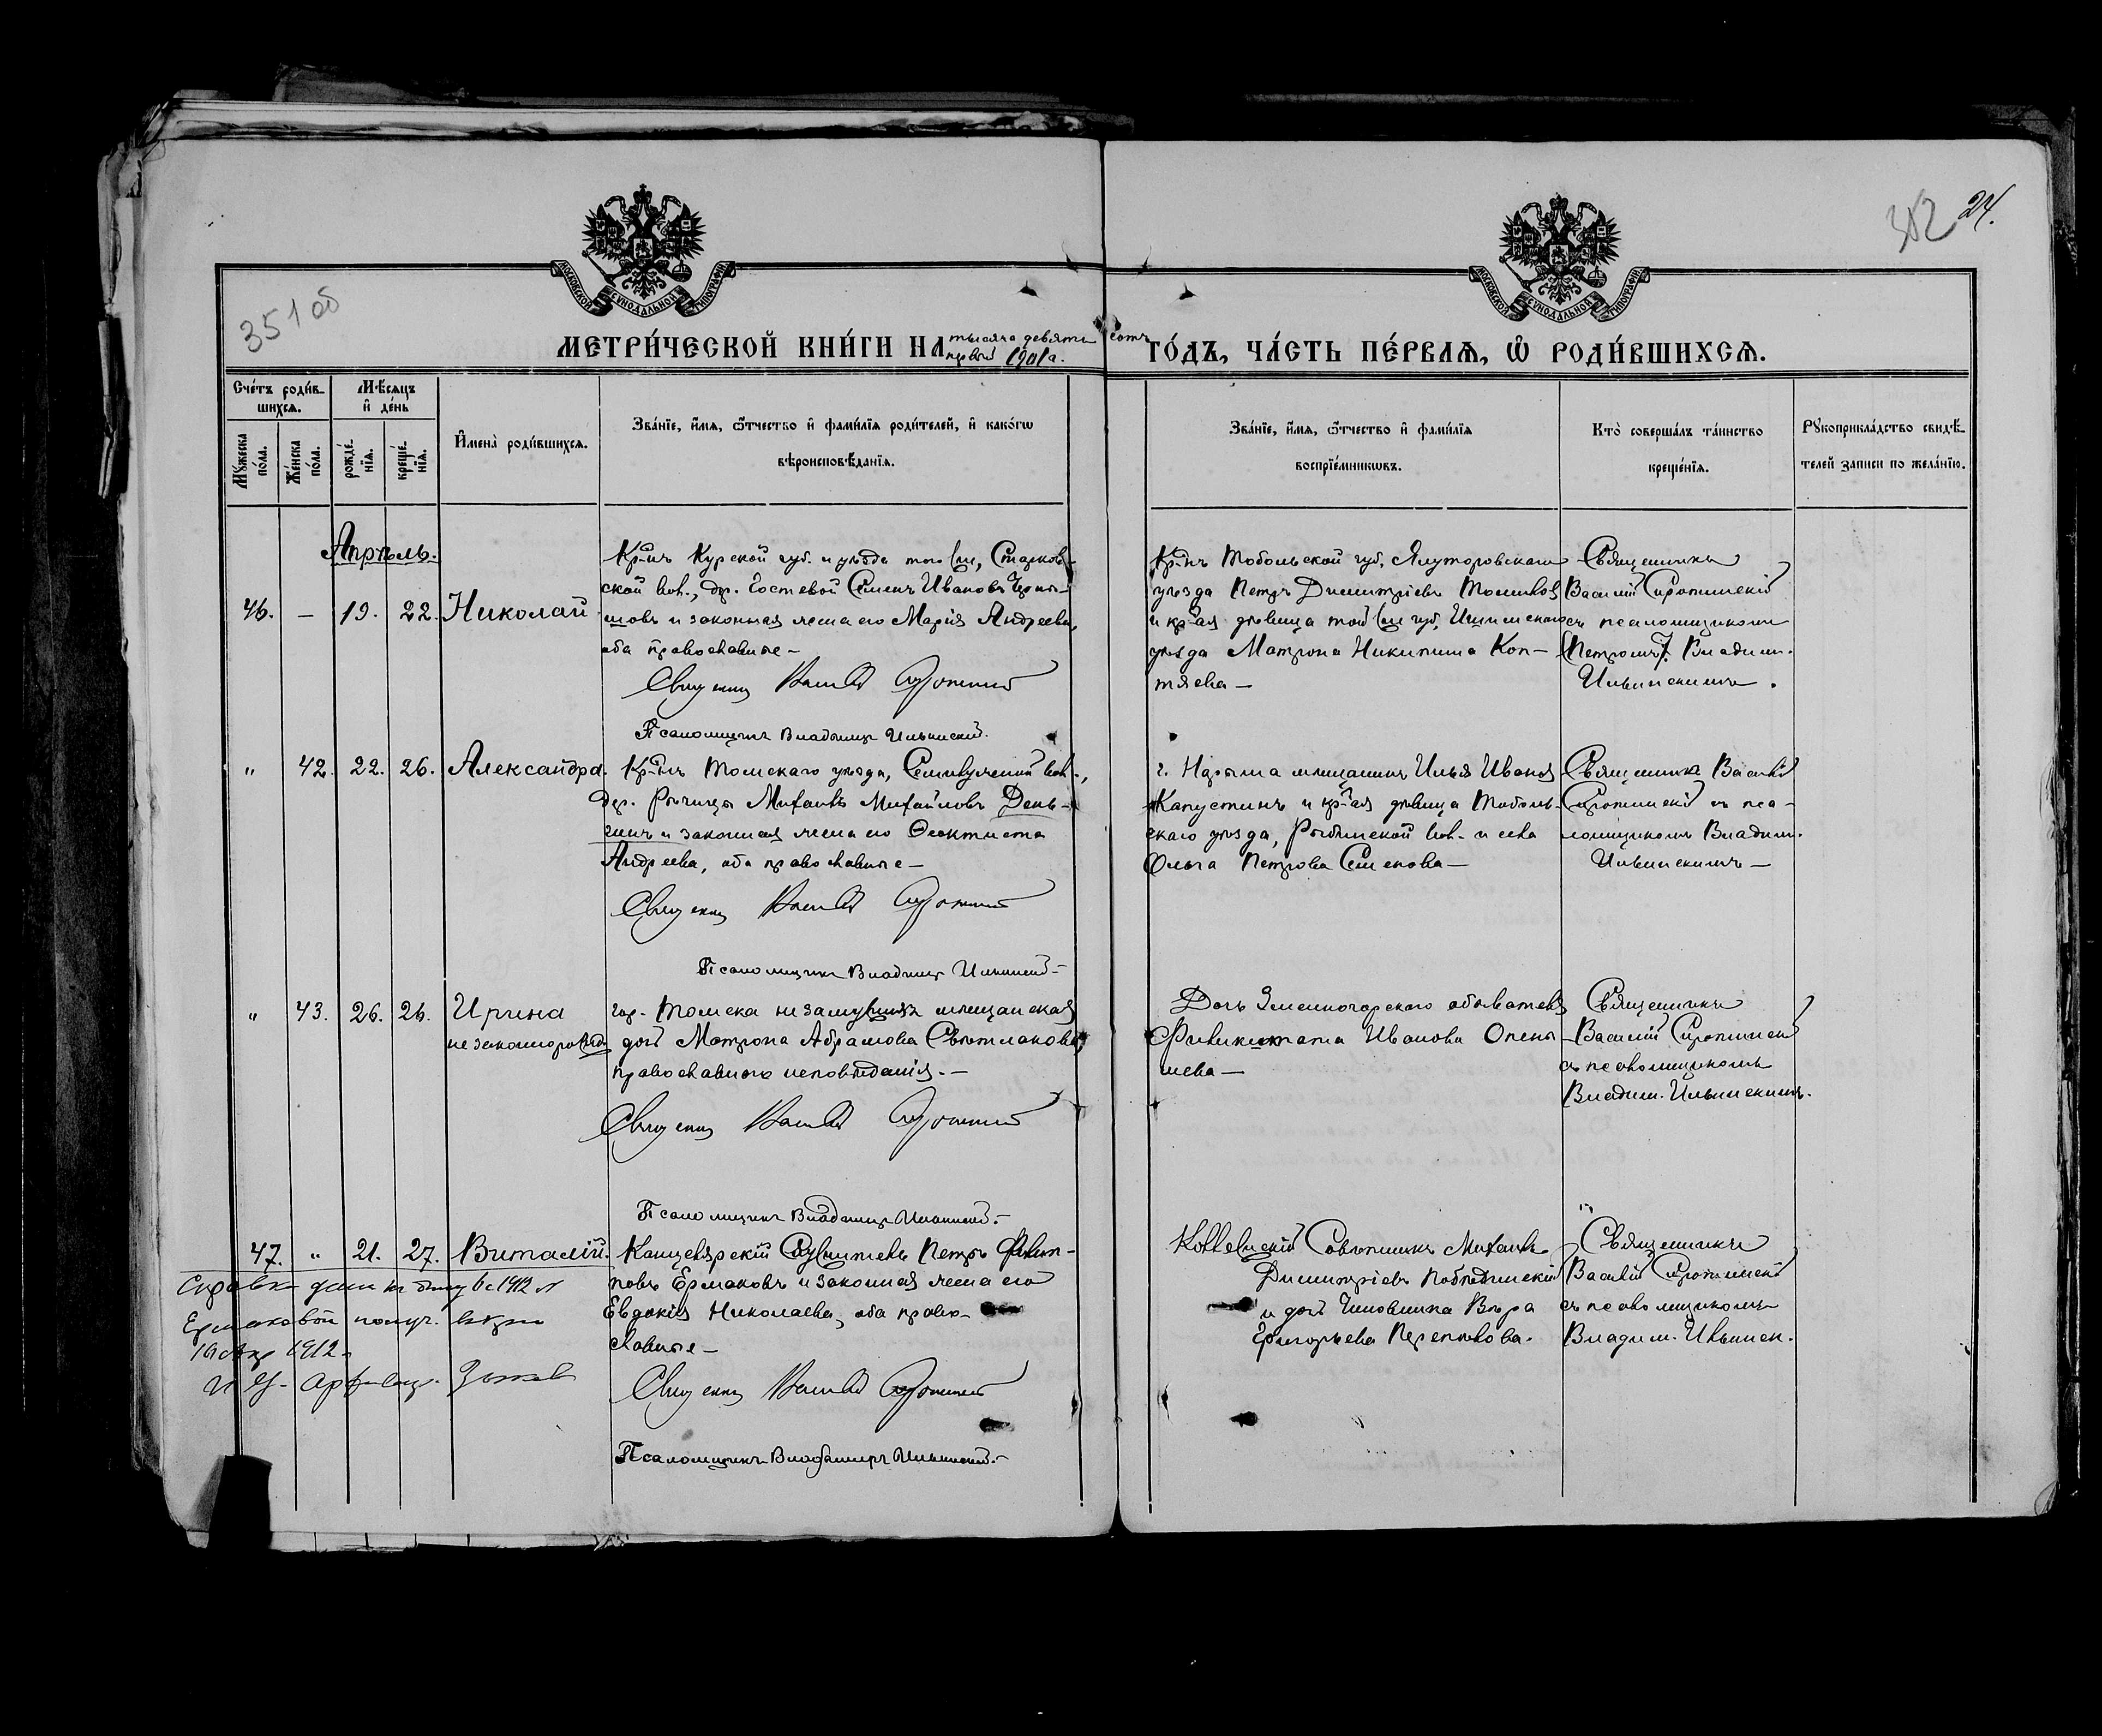 35 1 об
24.
МОСКОВСКОЙ СѴНОДАЛЬНОЙ ТИПОГРАФІИ
МОСКОВСКОЙ СѴНОДАЛЬНОЙ ТИПОГРАФІИ
МЕТРИ́ЧЕСКОЙ КНИ́ГИ НА тысяча девять сотъ первый 1901 г. ГО́ДЪ, ЧА́СТЬ ПЕ́РВАѦ, Ѽ РОДИ́ВШИХСѦ.
Сче́тъ роди́в-
шихсѧ.
Мѣ́сѧцъ
и҆ де́нь
Мꙋ́жеска по́ла.
Же́нска по́ла.
рожде́-
нїѧ.
креще́-
нїѧ.
И҆мена̀ роди́вшихсѧ.
Зва́нїе, и҆́мѧ, ѻ҆́тчество и҆ фами́лїѧ роди́телей, и҆ како́гѡ
вѣроисповѣ́данїѧ.
Зва́нїе, и҆́мѧ, ѻ҆́тчество и҆ фами́лїѧ
воспрїе́мникѡвъ.
Кто̀ соверша́лъ та́инство
креще́нїѧ.
Рꙋкоприкла́дство свидѣ́-
телей записи по жела́нїю.
Апрѣль.
46. — 19. 22. Николай
Кр-нъ Курской губ. и уѣзда той же,
ской вол., др. Гостевой Семенъ Ивановъ
шовъ и законная жена его Марія Андреева,
оба православные —
Священникъ Василій Сиротинскій
Псаломщикъ Владиміръ Ильинскій.
Кр-нъ Тобольской губ, Ялуторовскаго
уѣзда Петръ Димитріевъ
и кр-ая дѣвица той же губ, Ишимскаго
уѣзда Матрона Никитина Коп-
тяева —
Священникъ
Василій Сиротинскій
съ псаломщикомъ
Владим.
Ильинскимъ.
" 42. 22. 26. Александра.
Кр-нъ Томскаго уѣзда, Семилужной вол.,
др. Рѣчицы Михаилъ Михайловъ День-
гинъ и законная жена его Феоктиста
Андреева, оба православные —
Священникъ Василій Сиротинскій
Псаломщикъ Владиміръ Ильинскій —
г. Нарыма мѣщанинъ Илья Ивановъ
Капустинъ и кр-ая дѣвица Тоболь-
скаго уѣзда, вол. и села
Ольга Петрова Семенова —
Священникъ Василій
Сиротинскій съ пса-
ломщикомъ Владим.
Ильинскимъ —
" 43. 26. 26. Ирина
незаконорожд.
гор. Томска незамужняя мѣщанская
дочь Матрона Абрамова Свѣтлакова,
православнаго исповѣданія. —
Священникъ Василій Сиротинскій
Псаломщикъ Владиміръ Ильинскій. —
Дочь Змеиногорскаго обывателя
Иванова
шева —
Священникъ
Василій Сиротинскій
съ псаломщикомъ
Владим. Ильинскимъ.
47. " 21. 27. Виталій.
Канцелярскій Служитель Петръ Филип-
повъ Ермаковъ и законная жена его
Евдокія Николаева, оба право-
славные —
Священникъ Василій Сиротинскій
Псаломщикъ Владиміръ Ильинскій. —
Коллежскій Совѣтникъ Михаилъ
Димитріевъ
и дочь Чиновника Вѣра
Григорьева
Священникъ
Василій Сиротинскій
съ псаломщикомъ
Владим. Ильинск.
Справка дана 1912 г
Ермаковой
1912